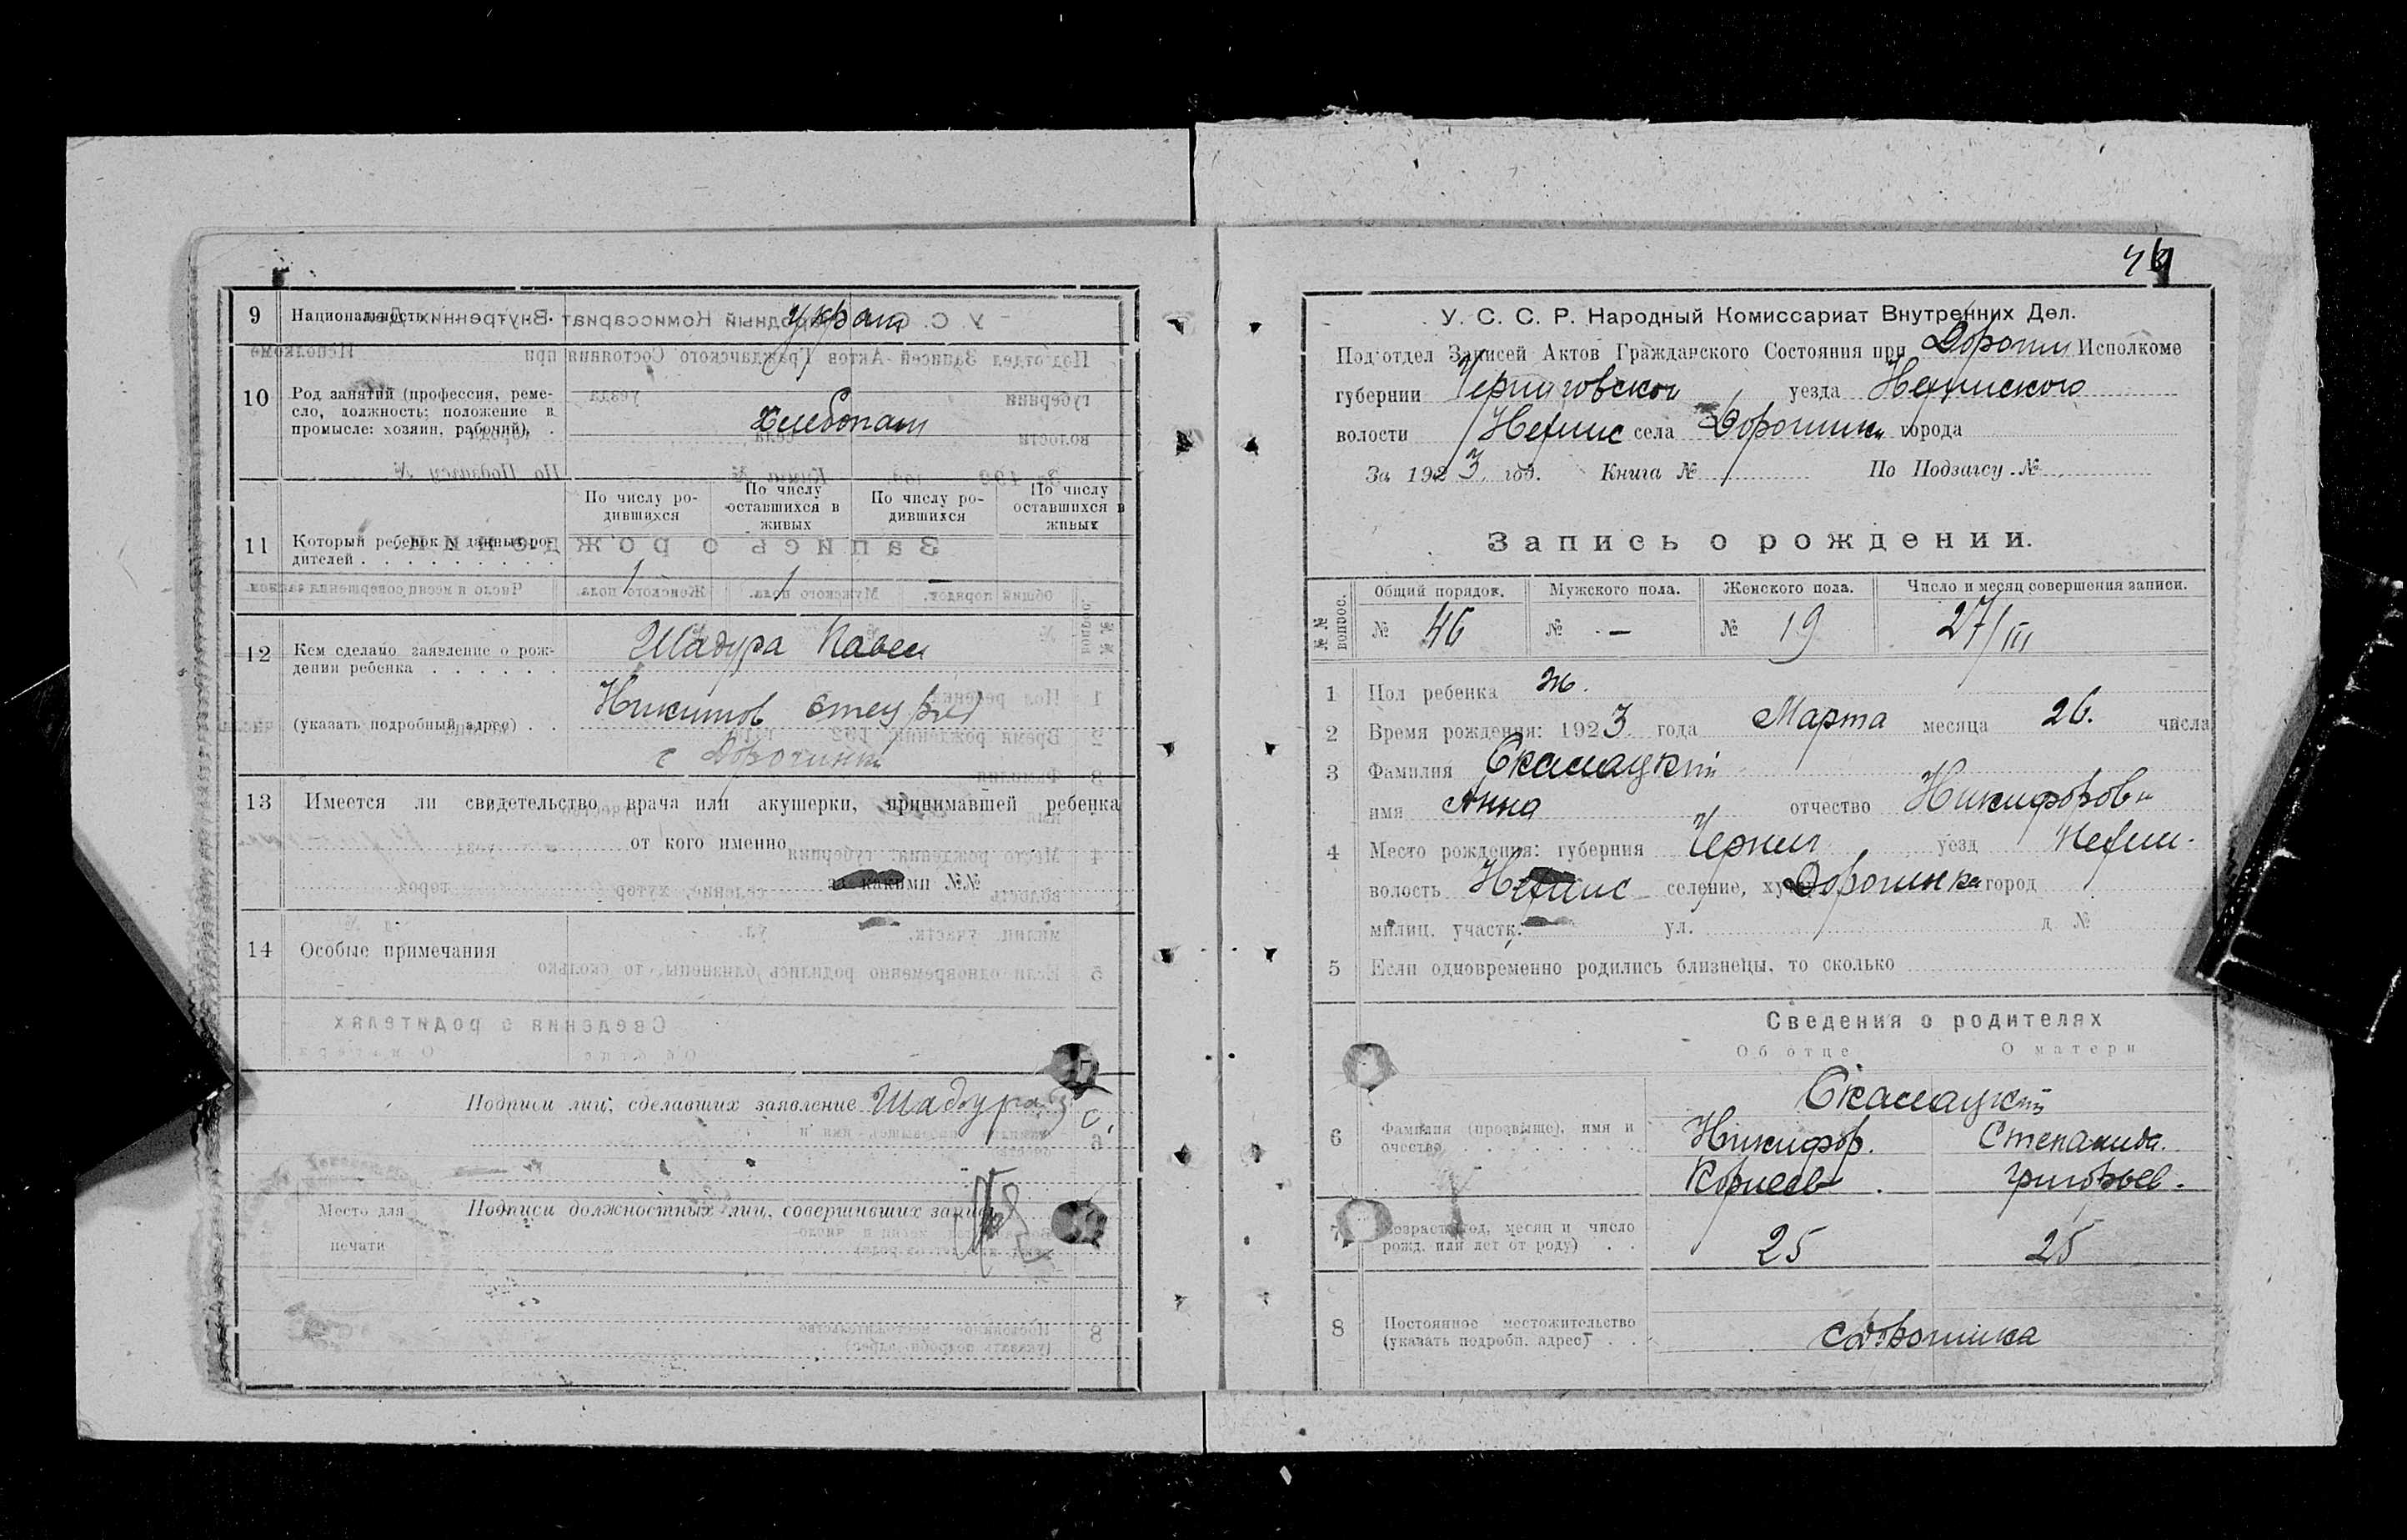 9 Национальность украин
10 Род занятий (профессия, реме-
сло, должность; положение в
промысле: хозяин, рабочий). .
Хлебопаш
По числу ро-
дившихся
По числу
оставшихся в
живых
По числу ро-
дившихся
По числу
оставшихся в
живых
11 Который ребенок у данных ро-
дителей . . . . . . . . .
1 1 —
12 Кем сделано заявление о рож-
дении ребенка . . . . . .
Шадура Павел
(указать подробный адрес) . .
Никитов
с Дорогинка
13 Имеется ли свидетельство врача или акушерки, принимавшей ребенка
от кого именно
за какими №№
14 Особые примечания
Подписи лиц, сделавших заявление Шадура
Подписи должностных лиц, совершивших запись
Место для
печати
46
У. С. С. Р. Народный Комиссариат Внутренних Дел.
Под'отдел Записей Актов Гражданского Состояния при Дорогин Исполкоме
губернии Черниговской уезда Нежинского
волости Нежинс села Дорогинки города
За 1923 год. Книга № По Подзагсу №
Запись о рождении.
№№ вопрос.
Общий порядок. Мужского пола. Женского пола. Число и месяц совершения записи.
№ 46 № — № 19 27/III
1 Пол ребенка ж.
2 Время рождения: 1923 года Марта месяца 26. числа
3 Фамилия Скамацкий
имя Анна отчество Никифоровн
4 Место рождения: губерния Черниг уезд Нежин.
волость Нежинс селение, хутор Дорогинка город
милиц. участк. ул. д №
5 Если одновременно родились близнецы, то сколько
Сведения о родителях
Об отце О матери
Скамацкий
6 Фамилия (прозвище), имя и
очество . . . . . . . . .
Никифор. Степанида
Корнеев. Григорьев.
7 Возраст (год, месяц и число
рожд. или лет от роду) . .
25 25
8 Постоянное местожительство
(указать подробн. адрес) . .
с Дорогинка